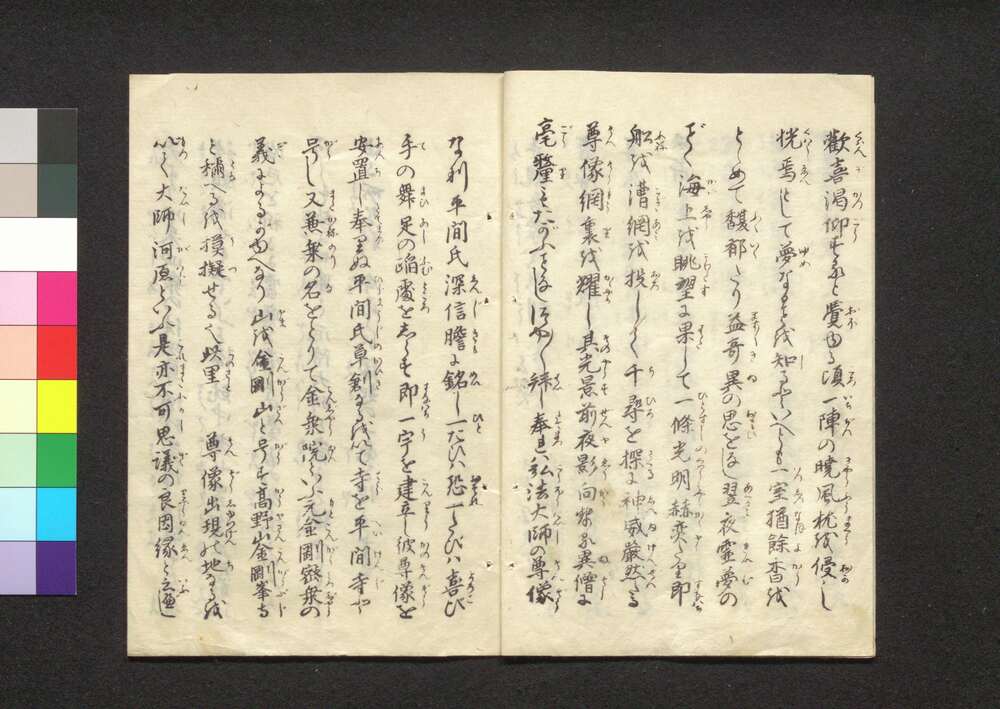 歓喜渇仰すると覚ゆる頃一陣の暁風枕を侵し
恍焉として夢なるを知るといへとも一室猶餘香を
とめて馥郁たり益奇異の思をなし翌夜霊夢の
海上を眺望に果して一條光明赫奕たり即
船を漕網を投して千尋を探に神威厳然たる
尊像網裏を耀し其光景前夜影向異僧に
毫釐もたかふことなし拝し奉れは弘法大師の尊像
なり平間氏深信膽に銘し一たひハ恐一たひハ喜び
手の舞足の踏處をしらす即一宇を建立し彼尊像を
安置し奉りぬ平間氏草創なるを以て寺を平間寺と
号し又兼乗の名をとりて金乗院といふ元金剛乗の
義によるのゆへなり山を金剛山と号す高野山金剛峯寺
と稱へるを摸擬せる也此里 尊像出現の地なるを
以て大師河原といふ是亦不可思議の良因縁と